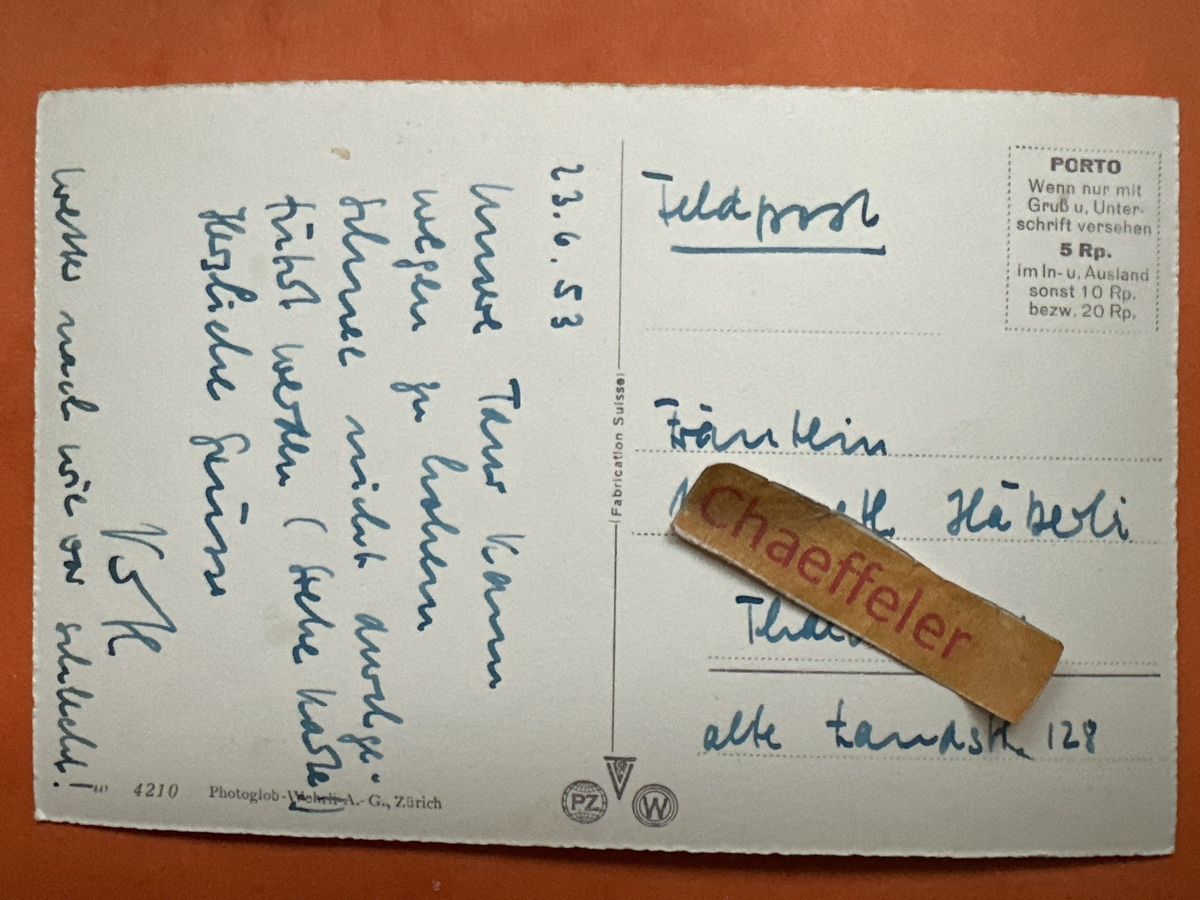 23.6.53
Unsere Tour kann
wegen zu hohem
Schnee nicht durchge-
führt werden (siehe Karte)
Herzliche Grüsse
Wetter nach wie vor schlecht!
4210 Photoglob-Wehrli A.-G., Zürich
(Fabrication Suisse)
PZ
W
Feldpost
PORTO
Wenn nur mit
Gruß u. Unter-
schrift versehen
5 Rp.
im In- u. Ausland
sonst 10 Rp.
bezw. 20 Rp.
Fräulein
Häberli
Chaeffeler
alte Landstr. 128